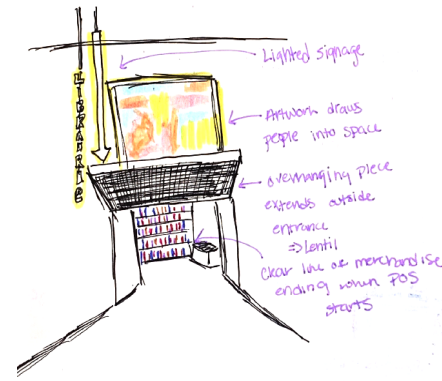 LIBRAIRIE
Lighted signage
Artwork draws
people into space
overhanging piece
extends outside
entrance
⇒ Lentil
clear line of merchandise
ending when POS
starts